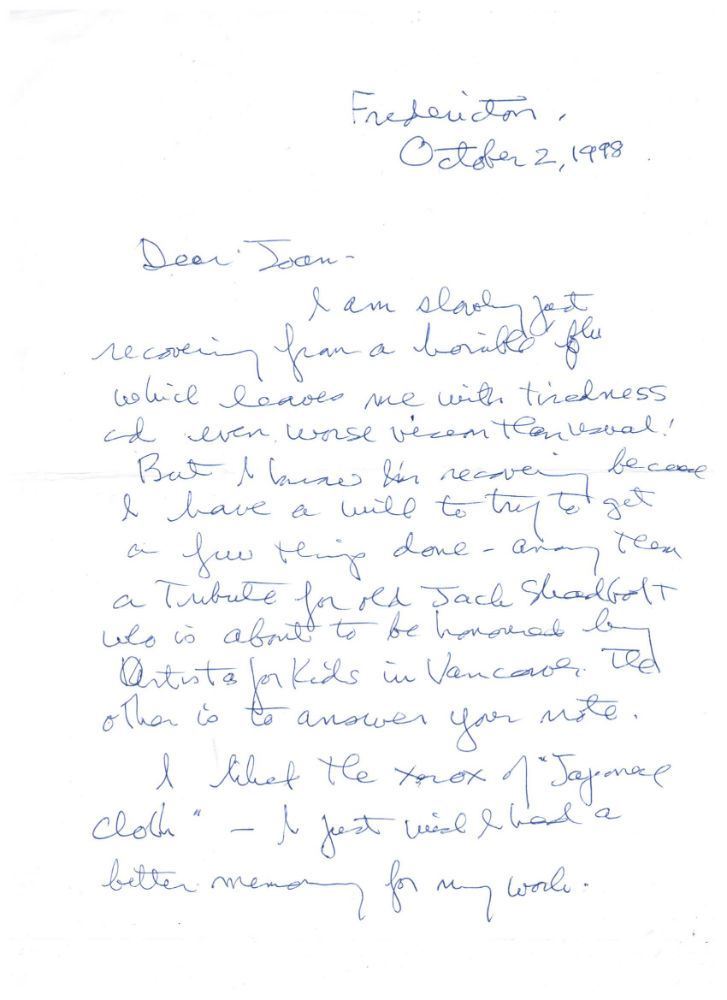 Fredericton,
October 2, 1998
Dear Joan-
I am slowly just
recovering from a horrible flu
which leaves me with tiredness
and even worse vision than usual!
But I know I'm recovering because
I have a will to try to get
a few things done - among them
a Tribute for old Jack Shadbolt
who is about to be honoured by
Artists for Kids in Vancouver. The
other is to answer your note.
I liked the xerox of "Japanese
cloth" - I just wish I had a
better memory for my work.